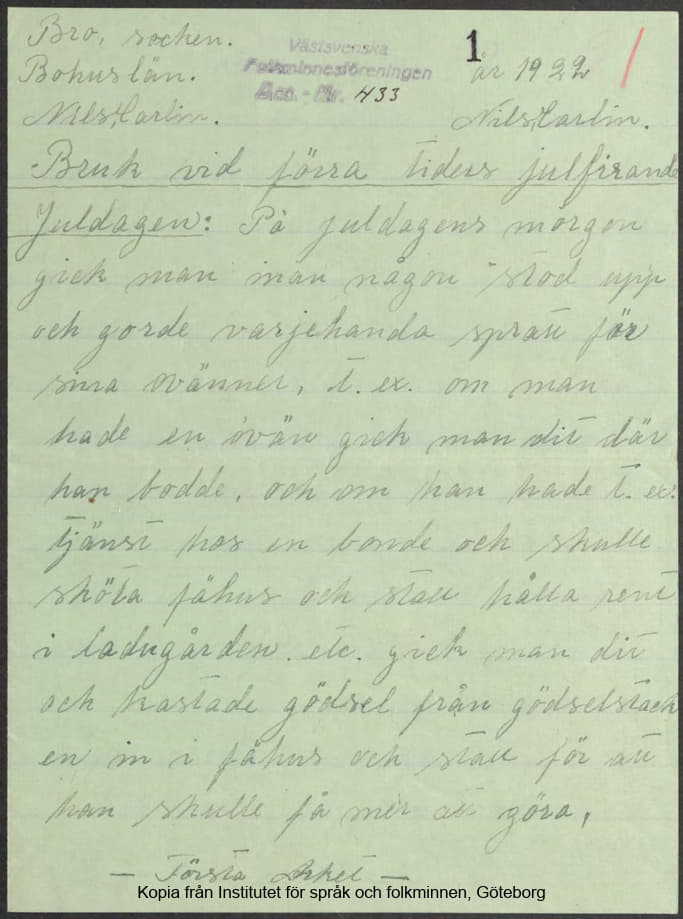 Bro, socken.
Västsvenska
Folkminnesföreningen
Acc. - Nr. 433
1
år 1922
Bohuslän.
Nils Carlin.
Nils Carlin.
Bruk vid förra tiders julfirande
Juldagen: På juldagens morgon
gick man innan någon stod upp
och gorde varjehanda spratt för
sina ovänner, t. ex. om man
hade en ovän gick man dit där
han bodde, och om han hade t. ex.
tjänst hos en bonde och skulle
sköta fähus och stall hålla rent
i ladugården. etc. gick man dit
och kastade gödsel från gödselstack
en in i fähus och stall för att
han skulle få mer att göra.
— Första Arket —
Kopia från Institutet för språk och folkminnen, Göteborg